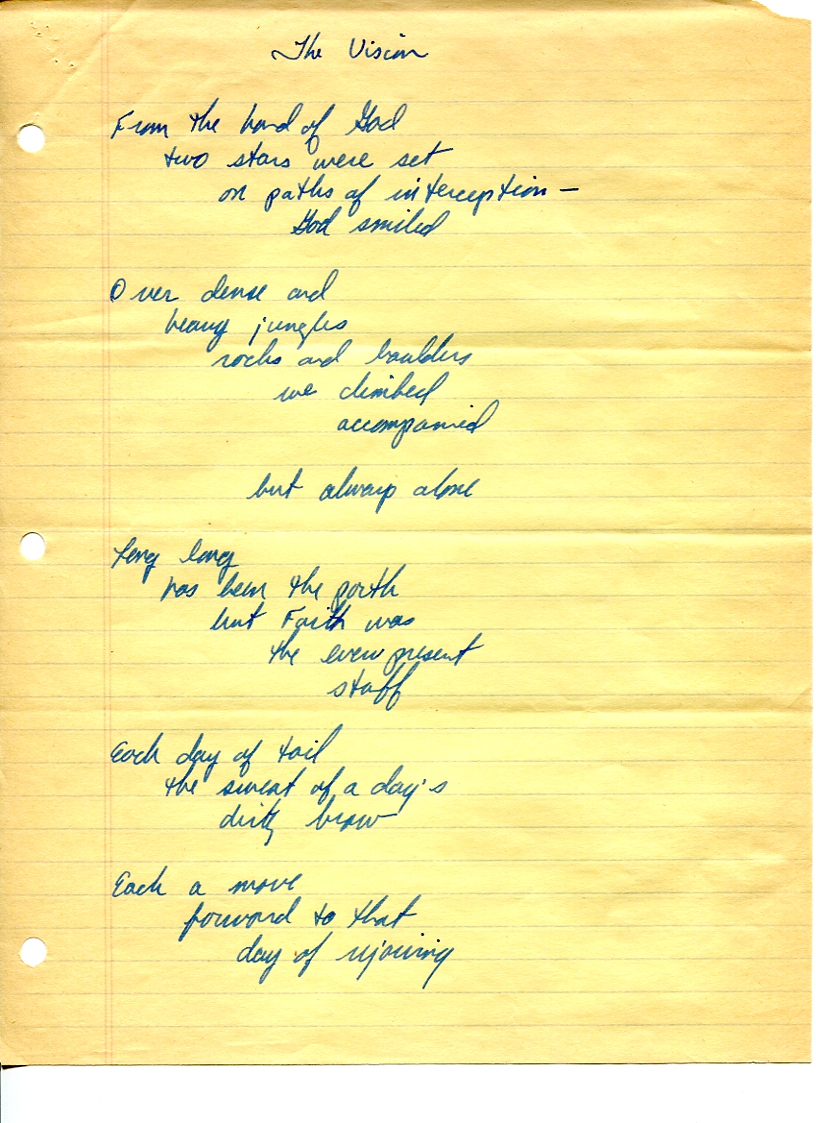 The Vision
From the hand of God
two stars were set
on paths of interception —
God smiled
Over dense and
heavy jungles
rocks and boulders
we climbed
accompanied
but always alone
Long long
has been the path
but Faith was
the ever present
staff
Each day of toil
the sweat of a day's
dirty brow
Each a move
forward to that
day of rejoicing